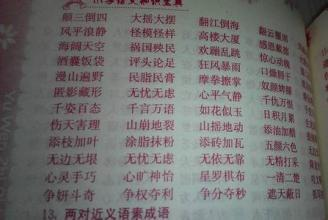 颠三倒四 大摇大摆 翻江倒海 翻云覆雨
风平浪静 怪模怪样 高楼大厦 感恩戴德
海阔天空 祸国殃民 欢蹦乱跳 惊心动魄
酒囊饭袋 评头论足 狂风暴雨
漫山遍野 民脂民膏 摩拳擦掌 奴颜婢膝
匿影藏形 无忧无虑 心平气静 千仇万恨
千姿百态 千言万语 如花似玉 日积月累
伤天害理 山崩地裂 山摇地动 添油加醋
添枝加叶 涂脂抹粉 添砖加瓦 五颜六色
无边无垠 无忧无虑 无依无靠 无精打采
心灵手巧 心旷神怡 星罗棋布 一清二楚
争妍斗奇 争权夺利 争分夺秒 遮天蔽日
13. 两对近义语素成语